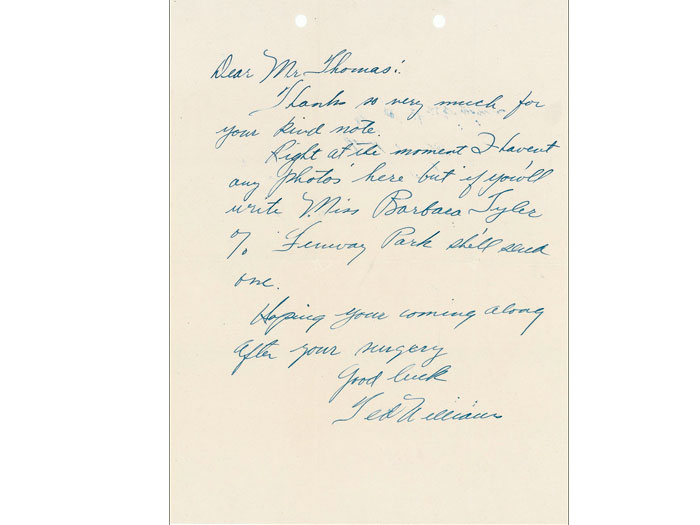 Dear Mr. Thomas:
Thanks so very much for
your kind note.
Right at the moment I havent
any photos here but if you'll
write Miss Barbara Tyler
% Fenway Park she'll send
one.
Hoping your coming along
After your surgery
Good luck
Ted Williams